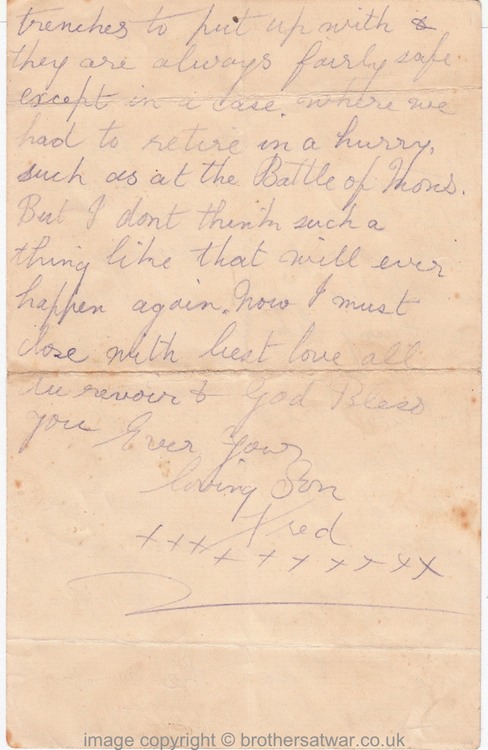 trenches to put up with &
they are always fairly safe
except in a case where we
had to retire in a hurry,
such as at the Battle of Mons.
But I dont think such a
thing like that will ever
happen again. Now I must
close with best love all
au revoir & God Bless
you Ever Your
loving Son
Fred
xxxxxxxxxx
image copyright © brothersatwar.co.uk